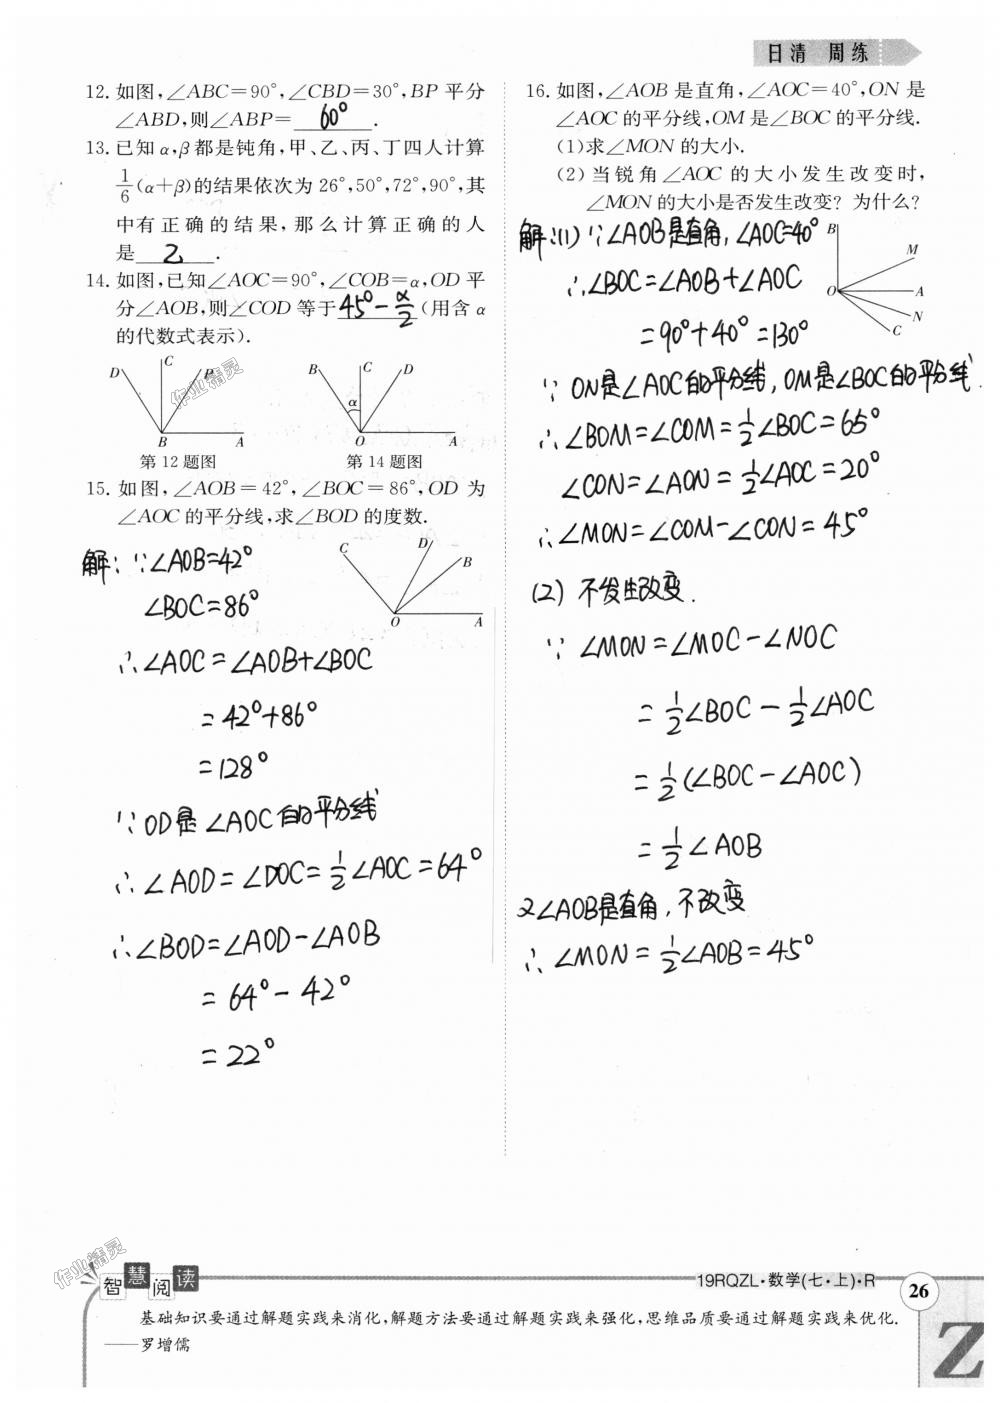 日清 周练
12. 如图,∠ABC=90°,∠CBD=30°,BP 平分
∠ABD,则∠ABP= 60° .
13. 已知 α,β 都是钝角,甲、乙、丙、丁四人计算
1/6(α+β)的结果依次为 26°,50°,72°,90°,其
中有正确的结果,那么计算正确的人
是 乙 .
14. 如图,已知∠AOC=90°,∠COB=α,OD 平
分∠AOB,则∠COD 等于 45°-α/2 (用含 α
的代数式表示).
D C P B A
B C D α O A
第 12 题图 第 14 题图
15. 如图,∠AOB=42°,∠BOC=86°,OD 为
∠AOC 的平分线,求∠BOD 的度数.
C D B O A
解:∵∠AOB=42°
∠BOC=86°
∴∠AOC=∠AOB+∠BOC
=42°+86°
=128°
∵OD是∠AOC的平分线
∴∠AOD=∠DOC=1/2∠AOC=64°
∴∠BOD=∠AOD-∠AOB
=64°-42°
=22°
16. 如图,∠AOB 是直角,∠AOC=40°,ON 是
∠AOC 的平分线,OM 是∠BOC 的平分线.
(1)求∠MON 的大小.
(2)当锐角∠AOC 的大小发生改变时,
∠MON 的大小是否发生改变? 为什么?
B M O A N C
解:(1)∵∠AOB是直角,∠AOC=40°
∴∠BOC=∠AOB+∠AOC
=90°+40°=130°
∵ON是∠AOC的平分线,OM是∠BOC的平分线.
∴∠BOM=∠COM=1/2∠BOC=65°
∠CON=∠AON=1/2∠AOC=20°
∴∠MON=∠COM-∠CON=45°
(2)不发生改变.
∵∠MON=∠MOC-∠NOC
=1/2∠BOC-1/2∠AOC
=1/2(∠BOC-∠AOC)
=1/2∠AOB
又∠AOB是直角,不改变
∴∠MON=1/2∠AOB=45°
作业精灵
作业精灵
智慧阅读
19RQZL·数学(七·上)·R
26
基础知识要通过解题实践来消化,解题方法要通过解题实践来强化,思维品质要通过解题实践来优化.
——罗增儒
Z